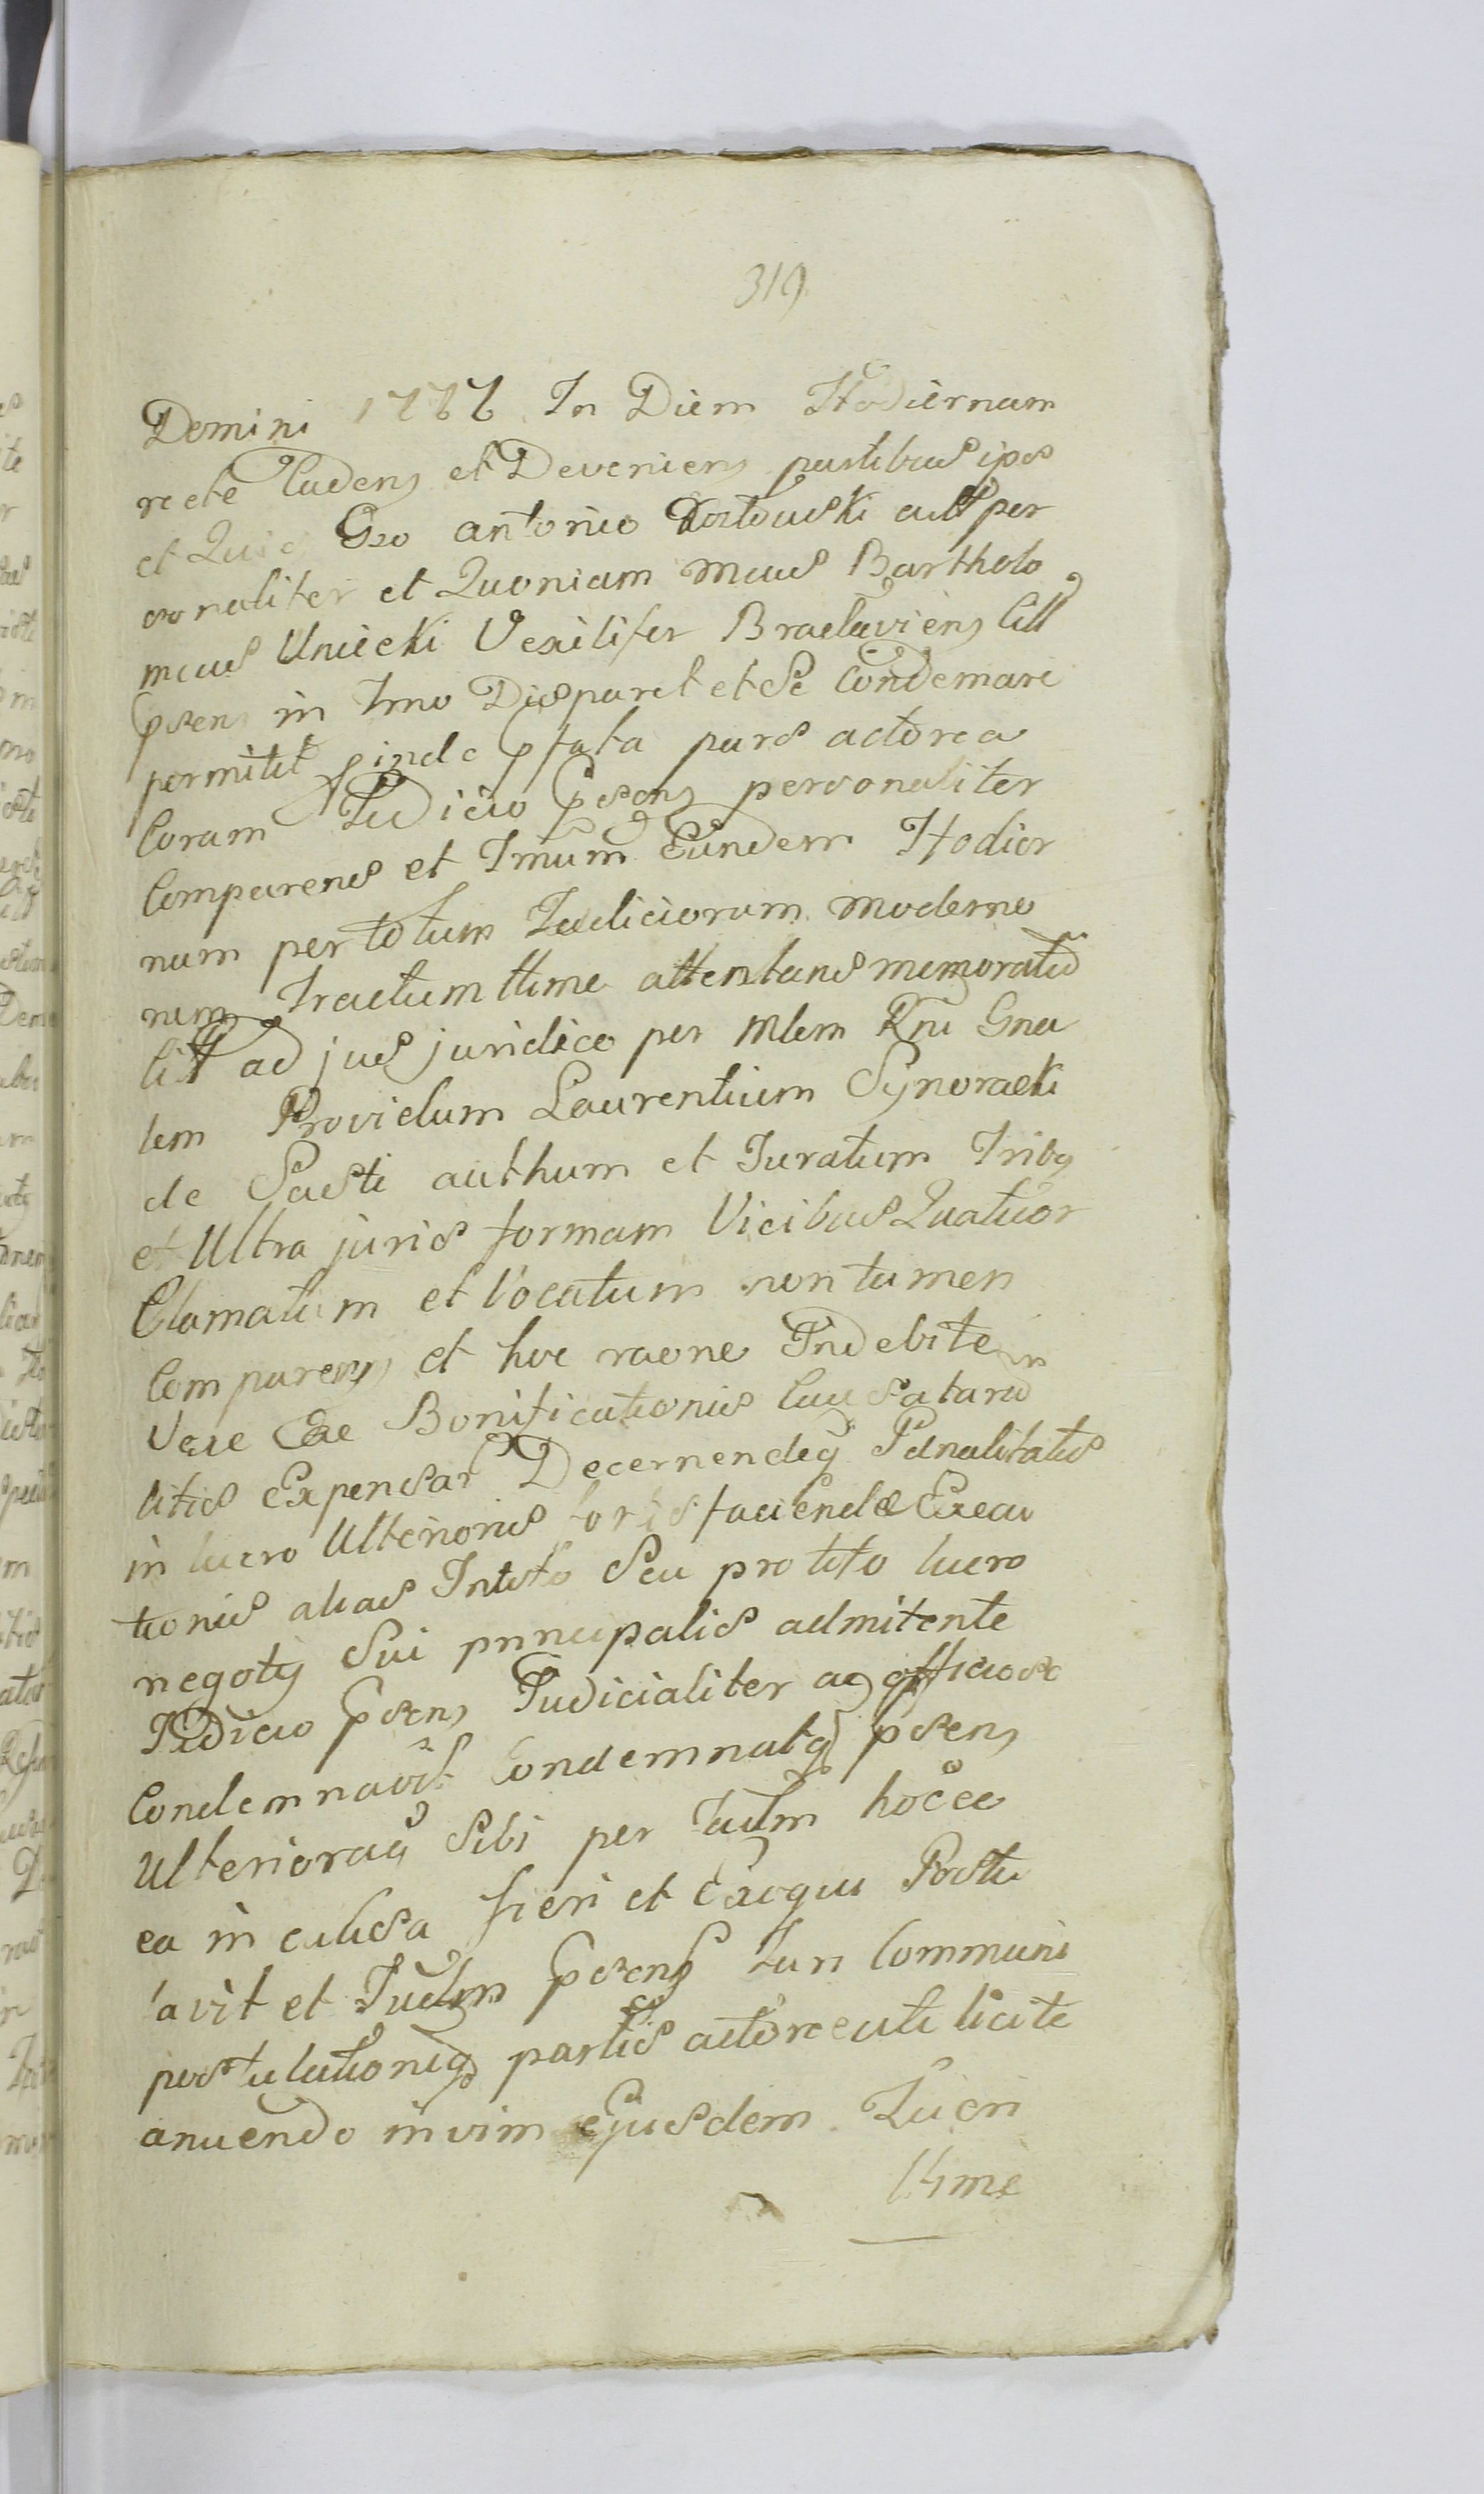 319
Domini 1777 In Diem Hodiernam
recte Cadens et Deveniens partibus ipss
et Gso antonio Kozlowski actt per
sonaliter et Quoniam Mcus Bartholo
meus Uniecki Vexilifer Braclaviens Citt
psens in Tmo Disparet et se Condemari
permitit pinde pfata pars actorea
Coram Judicio psens personaliter
Comparens et Tmum Eundem Hodier
num per totum Judiciorum moderno
num Tractum ttime attentans memoratu
citt ad jus juridice per Mlem Rni Gna
lem Providum Laurentium Synoracki
de authum et Juratum Tribq
et Ultra juris formam Vicibus Quatuor
Clamatum et Vocatum non tamen
Comparens et hoc raone Indebite in
Vexe Eae Bonificationis Causatarū
litis Expensar Decernendeq Pœnalitatis
in lucro Ulterioris foris faciendæ Execu
tionis alias Intoto Seu pro toto lucro
negotÿ Sui principalis admitente
Judicio psens Judicialiter ac officiose
Condemnavit Condemnatq psens
Ulterioraq Sibi per Judm hocce
ea in causa fieri et Exequi Postu
lavit et Judm psens Juri Communi
postulationiq partis actoreæ uti licite
anuendo invim Ejusdem Lucri
ttime